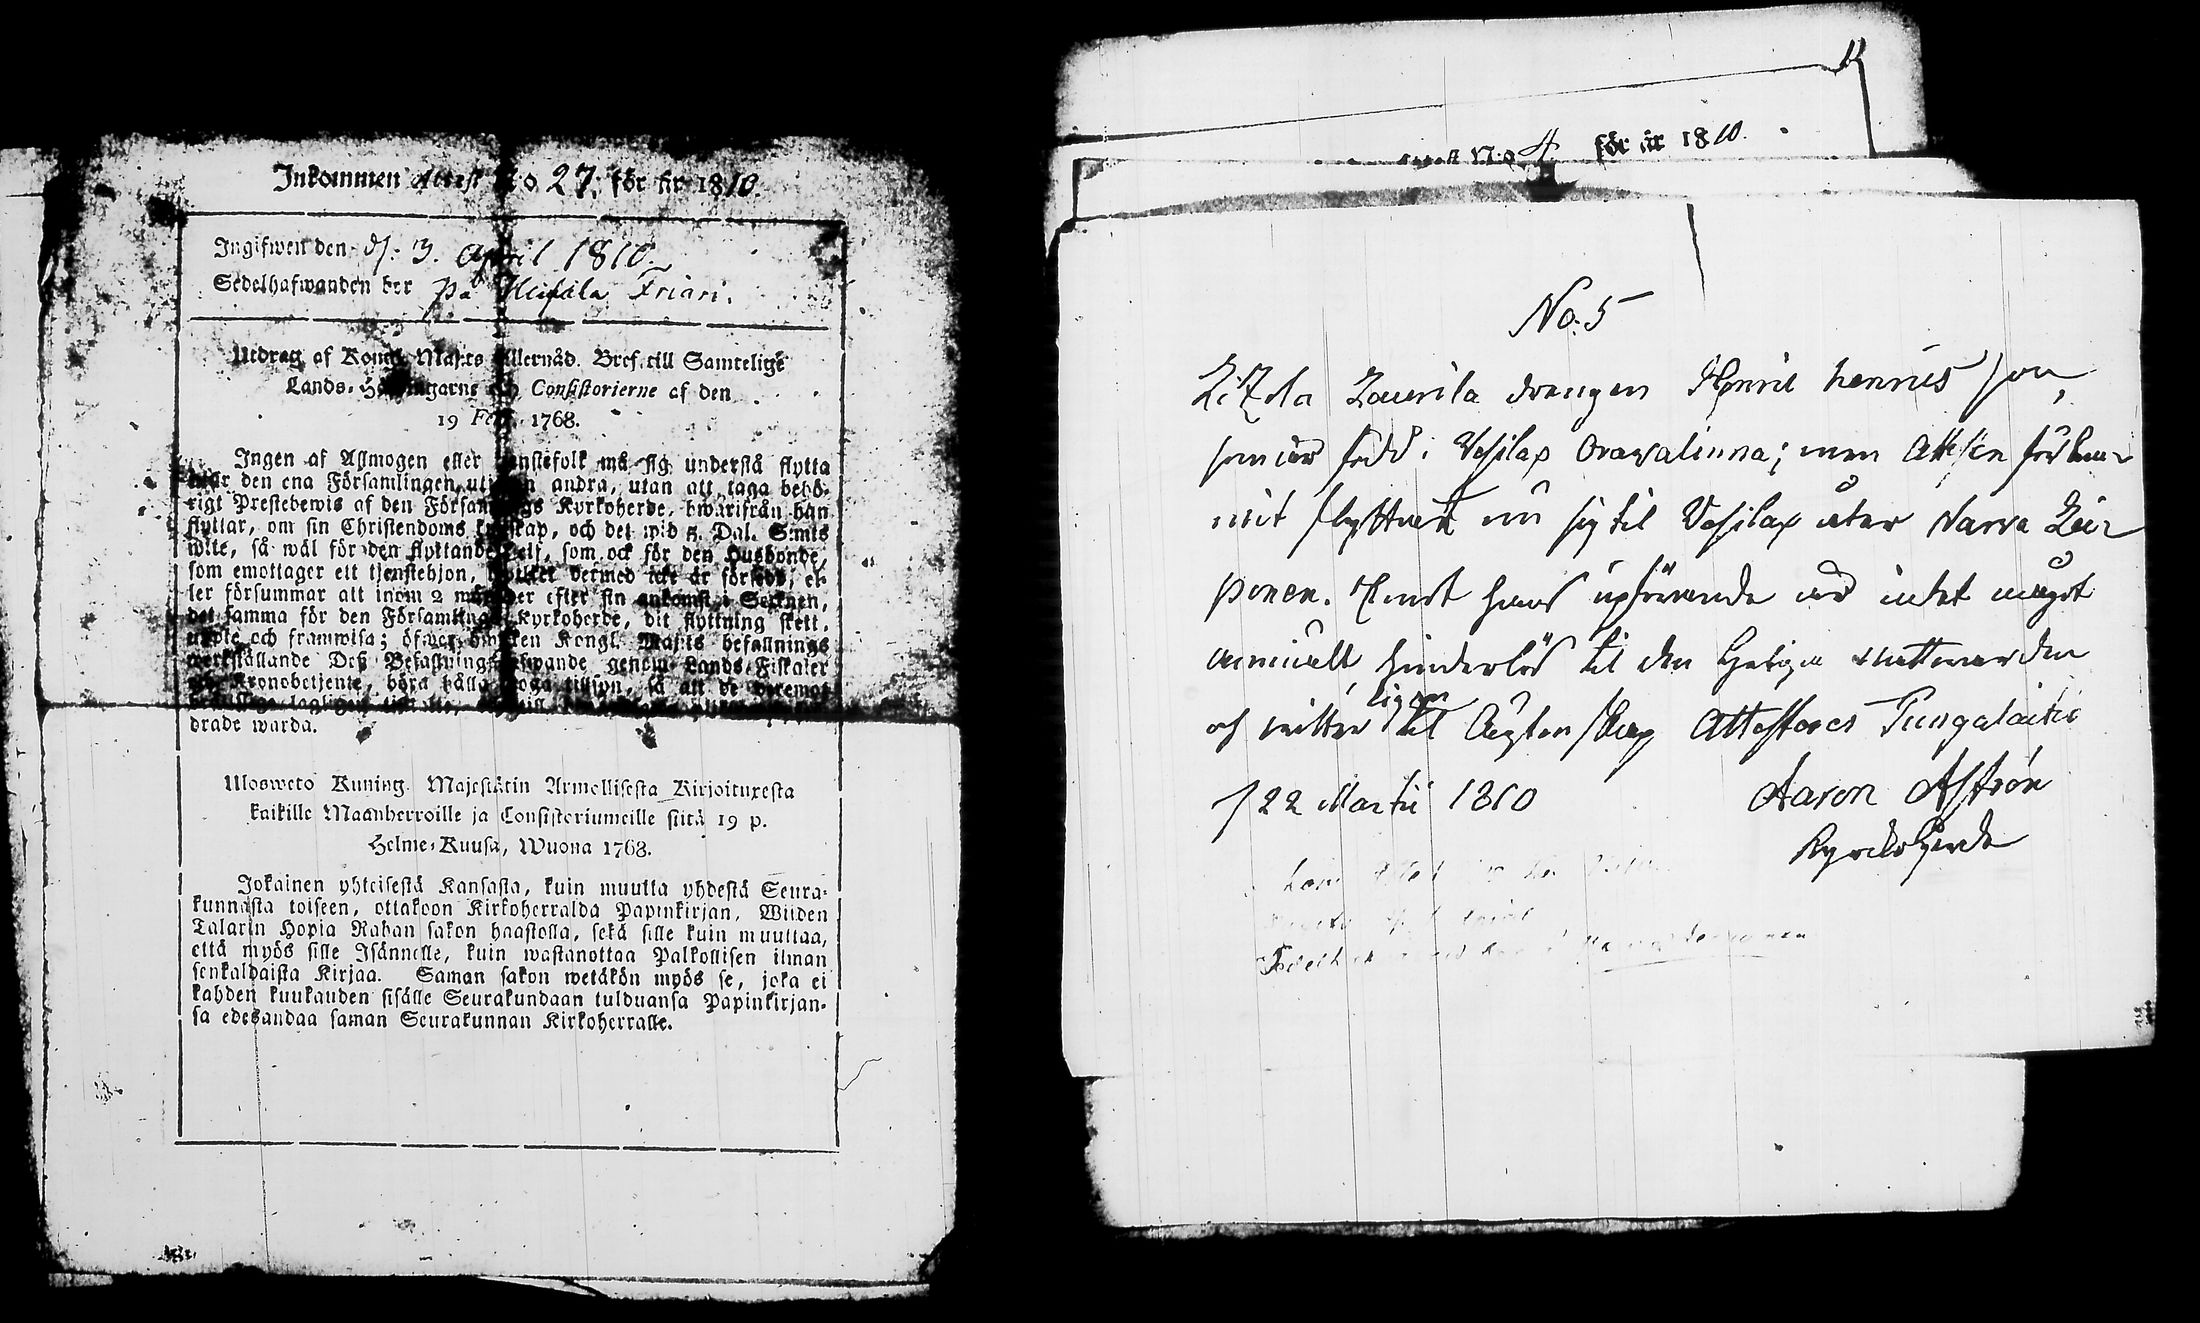 Inkommen Attest No 27. för år 1810.
Ingifwen den d. 3. April 1810.
Sedelhafwanden bor på Friari.
Utdrag af Kongl. Maj:ts Allernåd. Bref till Samtelige
Lands-Höfdingarne och Consistorierne af den
19 Febr. 1768.
Ingen af Allmogen eller Tjenstefolk må sig understå flytta
ifrån den ena Församlingen uti den andra, utan att taga behö-
rigt Prestebewis af den Församlings Kyrkoherde, hwarifrån han
flyttar, om sin Christendoms kunskap, och det wid 5. Dal. S:mts
wite, så wäl för den flyttande self, som ock för den Husbonde,
som emottager ett tjenstehjon, hwilket dermed icke är försedt, el-
ler försummar att inom 2 månader efter sin ankomst i Socknen,
det samma för den Församlings Kyrkoherde, dit flyttning skett,
upte och framwisa; öfwer hwilken Kongl. Maj:ts befallnings
werkställande Deß Befallningshafwande genom Lands-Fiskaler
och Kronobetjente, böra hålla noga tillsyn, så att de deremot
lagligen
drade warda.
Ulosweto Kuning. Majestätin Armollisesta Kirjoituxesta
kaikille Maanherroille ja Consistoriumeille siitä 19 p.
Helme-Kuusa, Wuona 1768.
Jokainen yhteisestä Kansasta, kuin muutta yhdestä Seura-
kunnasta toiseen, ottakoon Kirkoherralda Papinkirjan, Wiiden
Talarin Hopia Rahan sakon haastolla, sekä sille kuin muuttaa,
että myös sille Isännelle, kuin wastanottaa Palkollisen ilman
senkaldaista Kirjaa. Saman sakon wetäkön myös se, joka ei
kahden kuukauden sisälle Seurakundaan tulduansa Papinkirjan-
sa edesandaa saman Seurakunnan Kirkoherralle.
No 4 för år 1810.
No: 5
Laurila drengen Henric henrics son,
som är född i Vesilax Orawalinna; men
flyttar nu sig til Vesilax åter Narva
ponen. hans upförande är intet något
hinderlös til den Heliga nattvarden
och ligen til Ägtenskap Attesteras Pungalaitio
d 22 Martii 1810 Aaron Aström
Kyrckoherde